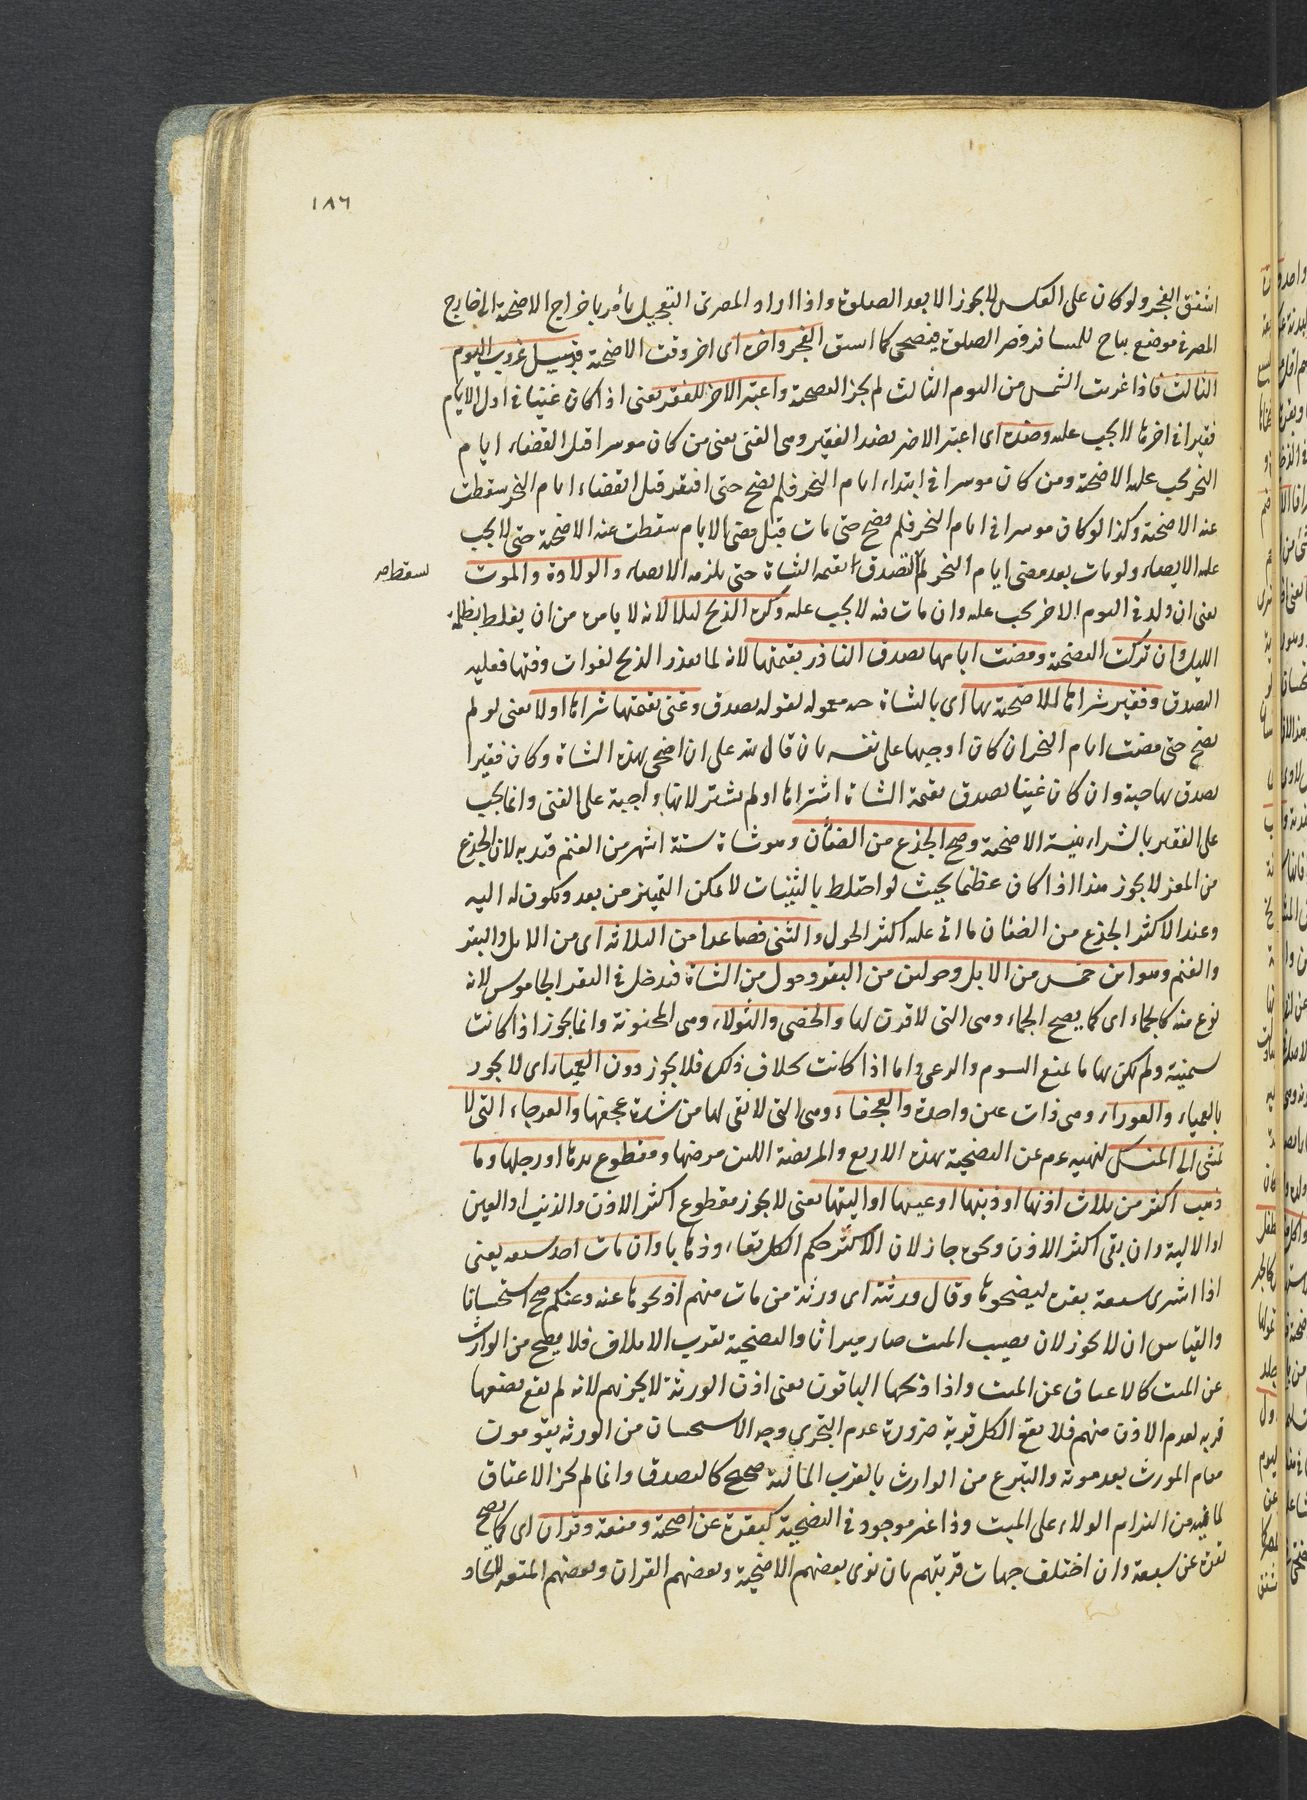 ١٨٦
انشق الفجر ولو كان على العكس لا يجوز الا بعد الصلوة واذا اراد المصرى التعجيل يأمر باخراج الاضحية الى خارج
المصر فى موضع يباح للمسافر قصر الصلوة فيضحى كما انشق الفجر واخره اى اخر وقت الاضحية قبيل غروب اليوم
الثالث فاذا غربت الشمس من اليوم الثالث لم يجز التضحية واعتبر الاخر للفقير يعنى اذا كان غنيا فى اول الايام
فقيرا فى اخرها لا يجب عليه وضده اى اعتبر الاخر لضد الفقير وهى الغنى يعنى من كان موسرا قبل انقضاء ايام
النحر يجب عليه الاضحية ومن كان موسرا فى ابتداء ايام النحر فلم يضح حتى افتقر قبل انقضاء ايام النحر سقطت
عنه الاضحية وكذا لو كان موسرا فى ايام النحر فلم يضح حتى مات قبل مضى الايام سقطت عنه الاضحية حتى لا يجب
عليه الايصاء ولو مات بعد مضى ايام النحر لم التصدق بقيمة الشاة حتى يلزمه الايصاء والولادة والموت
سقط صر
يعنى ان ولد فى اليوم الاخر يجب عليه وان مات فيه لا يجب عليه وكره الذبح ليلا لانه لا يامن من ان يغلط بظلمة
الليل وان تركت التضحية ومضت ايامها تصدق الناذر بقيمتها لانه لما تعذر الذبح لفوات وقتها فعليه
التصدق وفقير شراها للاضحية بها اى بالشاة حية معموله لقوله تصدق وغنى بقيمتها شراها اولا يعنى لو لم
يضح حتى مضت ايام النحر ان كان اوجبها على نفسه بان قال لله على ان اضحى بهذه الشاة وكان فقيرا
تصدق بها حية وان كان غنيا تصدق بقيمة الشاة اشتراها او لم يشتر لانها واجبة على الغنى وانما يجب
على الفقير بالشراء بنية الاضحية وصح الجذع من الضأن وهو شاة ستة اشهر من الغنم قيد به لان الجذع
من المعز لا يجوز هذا اذا كان عظيما بحيث لو اختلط بالثنيات لا يمكن التمييز من بعد ويكون له الية
وعند الاكثر الجذع من الضئان ما اتى عليه اكثر الحول والثنى فصاعدا من الثلاثة اى من الابل والبقر
والغنم وهو ابن خمس من الابل وحولين من البقر وحول من الشاة فيدخل فى البقر الجاموس لانه
نوع منه كالجماء اى كما يصح الجماء وهى التى لا قرن لها والخصى والثولاء وهى المجنونة وانما يجوز اذا كانت
سمينة ولم يكن بها ما يمنع السوم والرعى واما اذا كانت بخلاف ذلك فلا يجوز دون العمياء اى لا يجوز
بالعمياء والعوراء وهى ذات عين واحدة والعجفاء وهى التى لا نقى لها من شدة عجفها والعرجاء التى لا
تمشى الى المنسك لنهيه عم عن التضحية بهذه الاربع والمريضة البين مرضها ومقطوع يدها او رجلها وما
ذهب اكثر من ثلاث اذنها او ذنبها او عينها او اليتها يعنى لا يجوز مقطوع اكثر الاذن والذنب او العين
او الالية وان بقى اكثر الاذن ونحوه جاز لان للاكثر حكم الكل بقاء وذهابا وان مات احد سبعة يعنى
اذا اشترى سبعة بقرة ليضحوها وقال ورثته اى ورثة من مات منهم اذبحوها عنه وعنكم صح استحسانا
والقياس ان لا يجوز لان نصيب الميت صار ميراثا والتضحية تقرب الاتلاف فلا يصح من الوارث
عن الميت كالاعتاق عن الميت واذا ذبحها الباقون يعنى اذن الورثة لا يجزئهم لانه لم يقع بعضها
قربة لعدم الاذن منهم فلا يقع الكل قربة ضرورة عدم التجزى وجه الاستحسان من الورثة يقومون
مقام المورث بعد موته والتبرع من الوارث بالقرب المالية صحيح كالتصدق وانما لم يجز الاعتاق
لما فيه من التزام الولاء على الميت وذا غير موجود فى التضحية كبقرة عن اضحية ومتعة وقران اى كما يصح
بقرة عن سبعة وان اختلف جهات قربتهم بان نوى بعضهم الاضحية وبعضهم القران وبعضهم المتعة لاتحاد